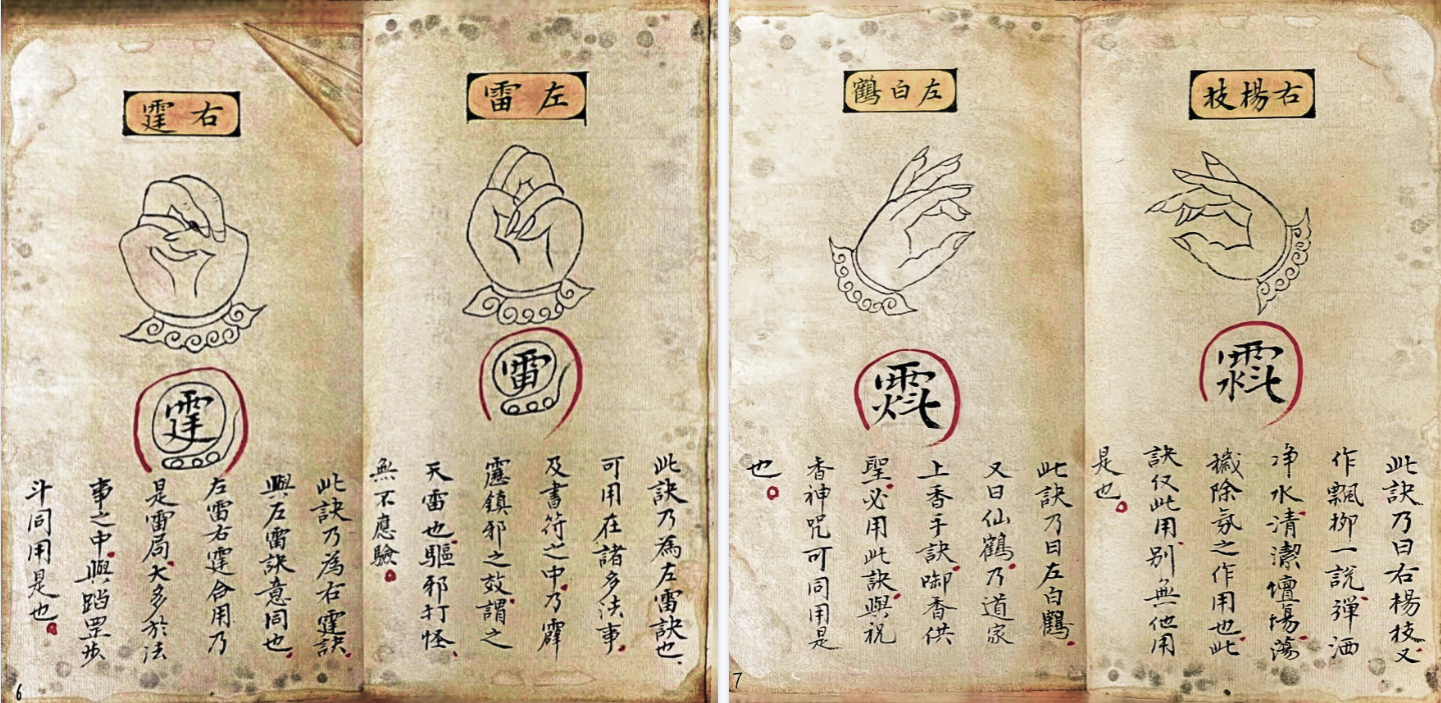 左雷
雷
此訣乃為左雷訣也、
可用在諸多法事、
及書符之中、乃霹
靂鎮邪之效、謂之
天雷也、驅邪打怪、
無不應驗。
右霆
霆
此訣乃為右霆訣、
與左雷訣意同也、
左雷右霆合用乃
是雷局、大多於法
事之中、與踏罡步
斗同用是也。
6
右楊枝
此訣乃曰右楊枝、又
作飄柳一說、彈洒
净水、清潔壇場、蕩
穢除氛之作用也、此
訣仅此用、别無他用
是也。
左白鶴
此訣乃曰左白鶴、
又曰仙鶴、乃道家
上香手訣、啣香供
聖、必用此訣、與祝
香神咒可同用是
也。
7